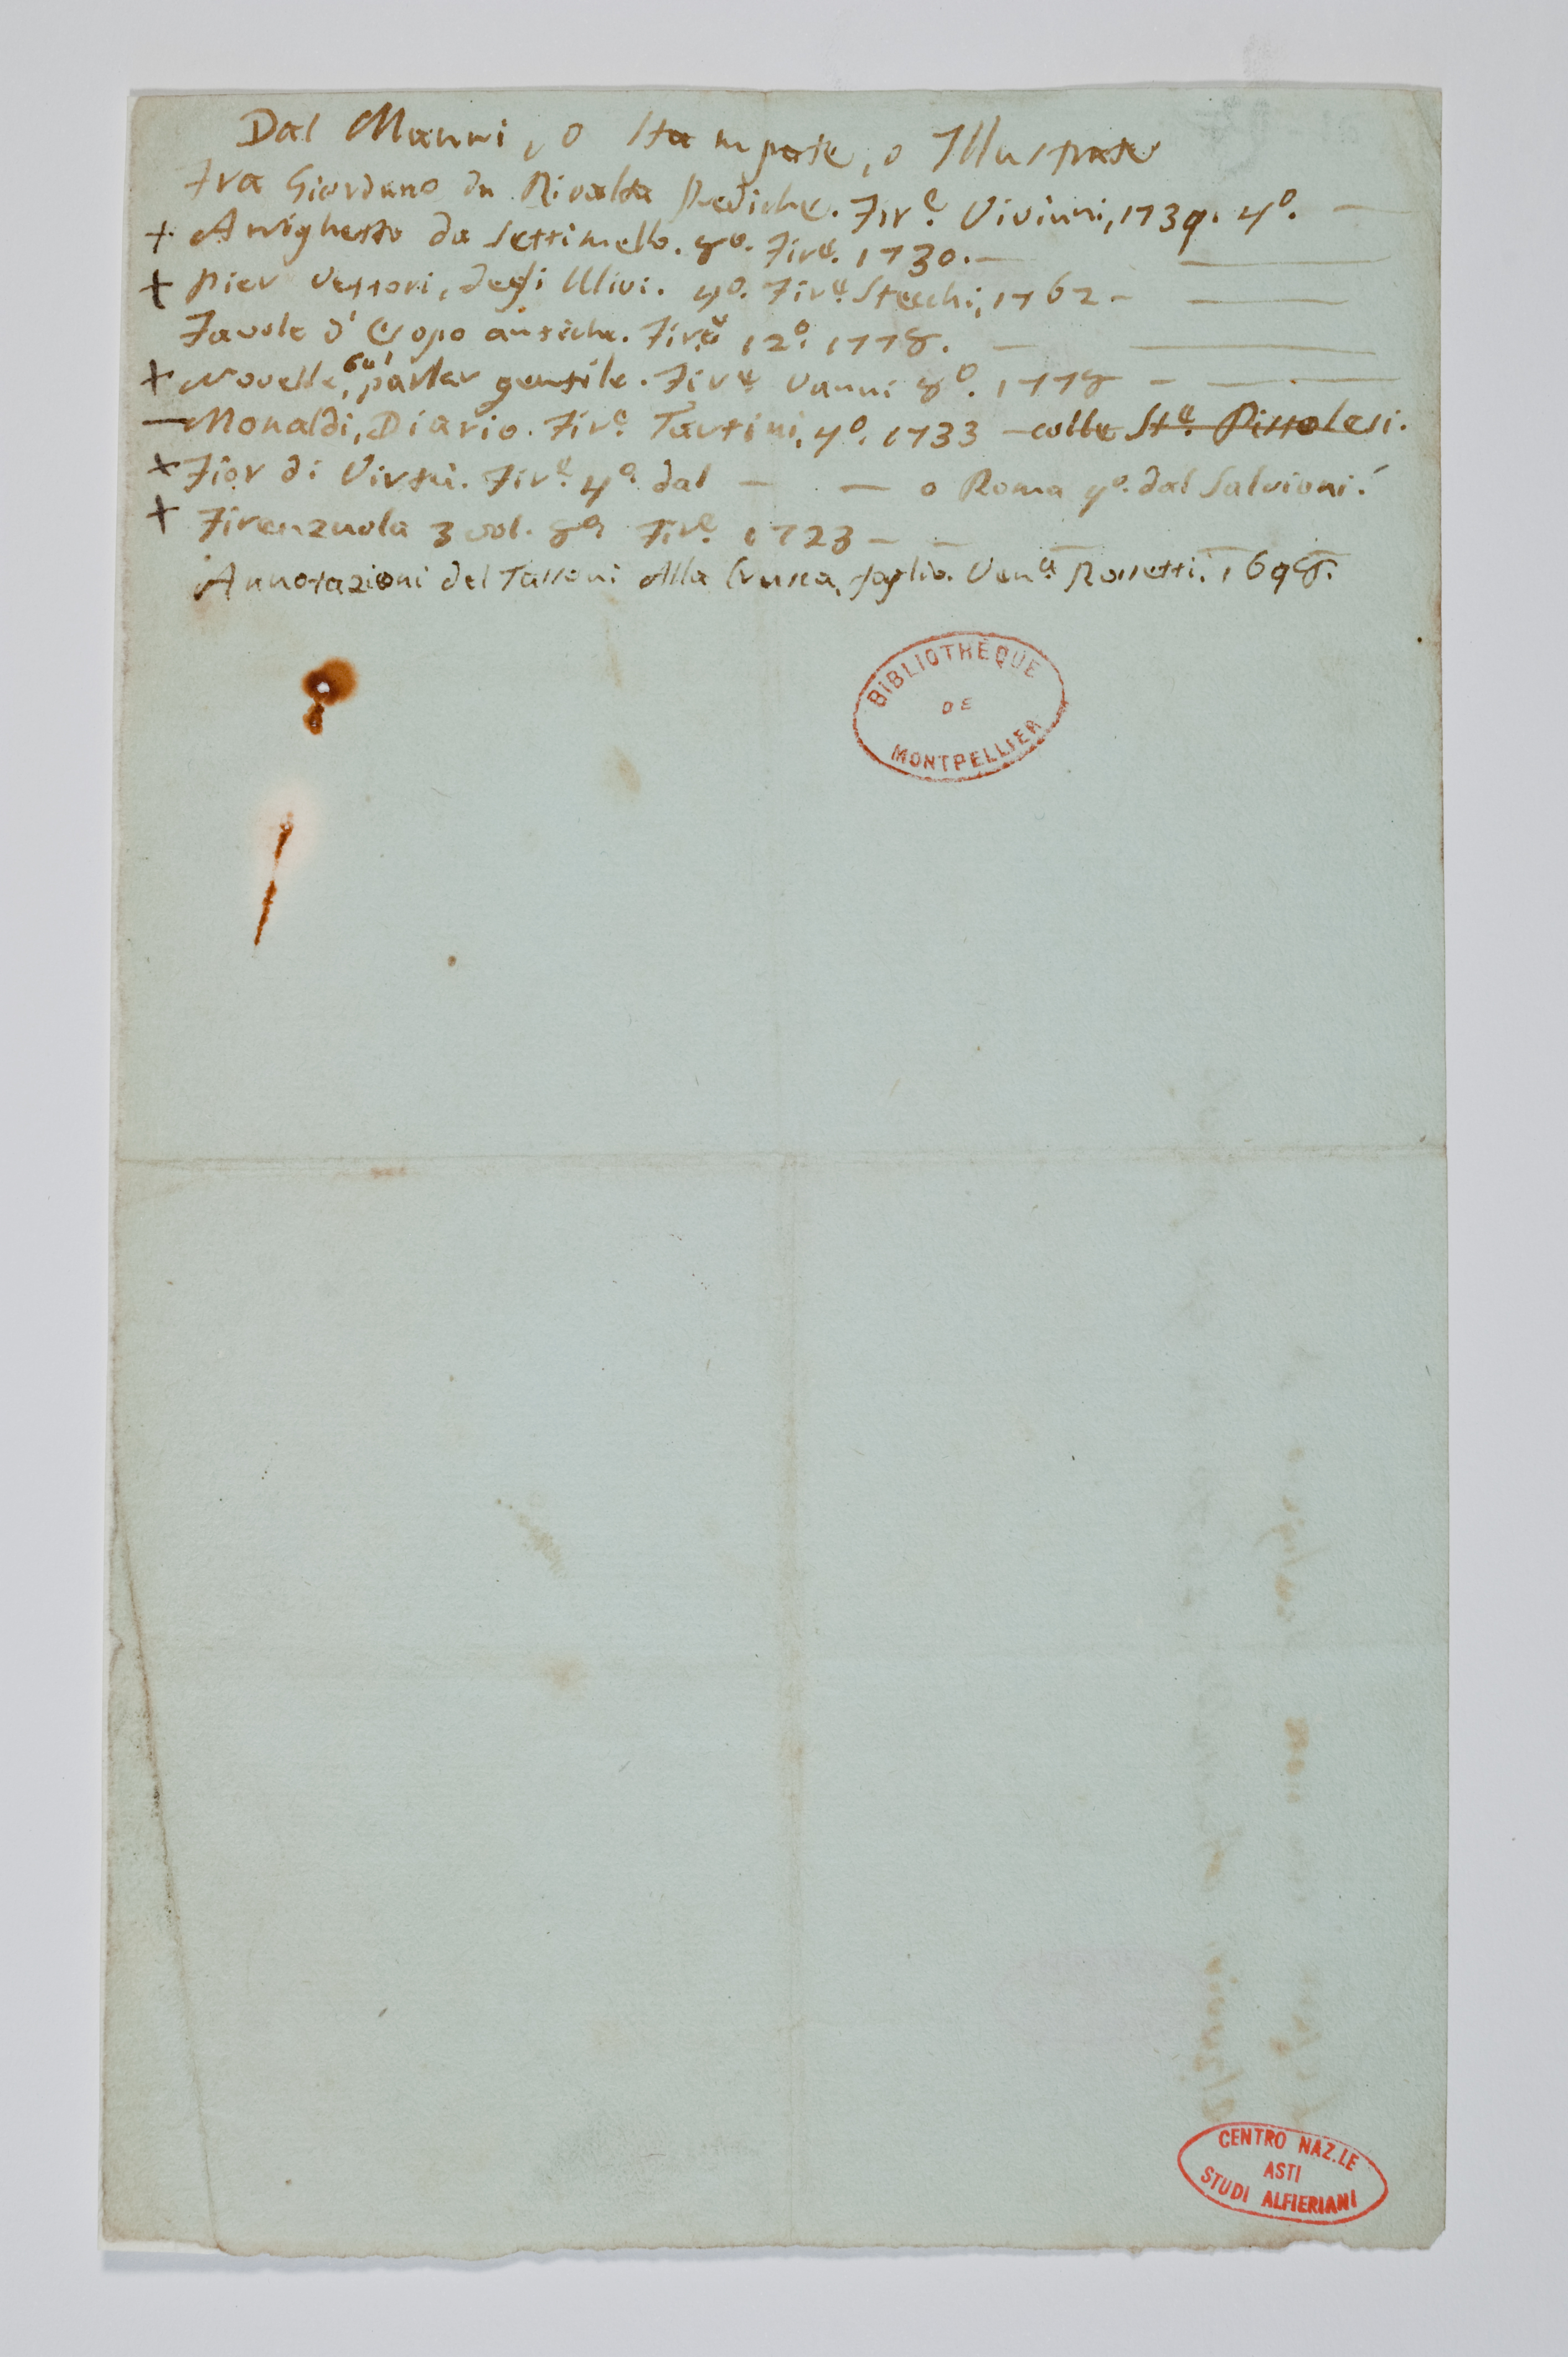 Dal Manni, o Stampate, o Illustrate
Fra Giordano da Rivalta Prediche. Fir.e Viviani, 1739. 4o. —
+ Arrighetto da Settimello. 8o. Fire. 1730. —
+ Pier Vettori, degli Ulivi. 4o. Fire. Stecchi, 1762 —
Favole d'Esopo antiche. Fire. 12o. 1778. —
+ Novelle, sul parlar gentile. Fire. Vanni 8o. 1778 —
— Monaldi, Diario. Fire. Tartini, 4o. 1733 — colle Ste. Pistolesi.
+ Fior di Virtù. Fire. 4o. dal — — o Roma 4o. dal Salvioni.
+ Firenzuola 3 vol. 8o. Fire. 1723 — —
Annotazioni del Tassoni Alla Crusca, foglio. Vena. Rossetti. 1698.
BIBLIOTHÈQUE
DE
MONTPELLIER
CENTRO NAZ.LE
ASTI
STUDI ALFIERIANI